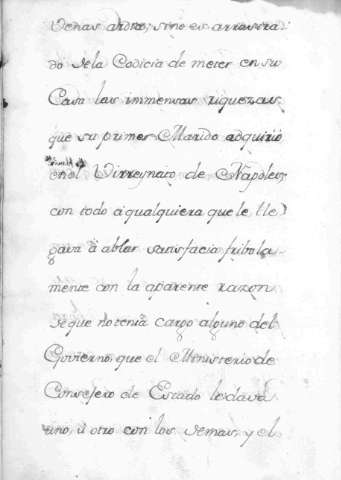 Venas ardor, sino es arrastra-
do de la Codicia de meter en su
Casa las immensas riquezas,
que su primer Marido adquirio
en el Virreynato de Napoles
con todo a qualquiera que le lle
gava à ablar satisfacia fribola-
mente con la aparente razon
de que no tenia cargo alguno del
Govierno que el Ministerio de
Consejero de Estado le dava
uno ù otro con los demas, y el